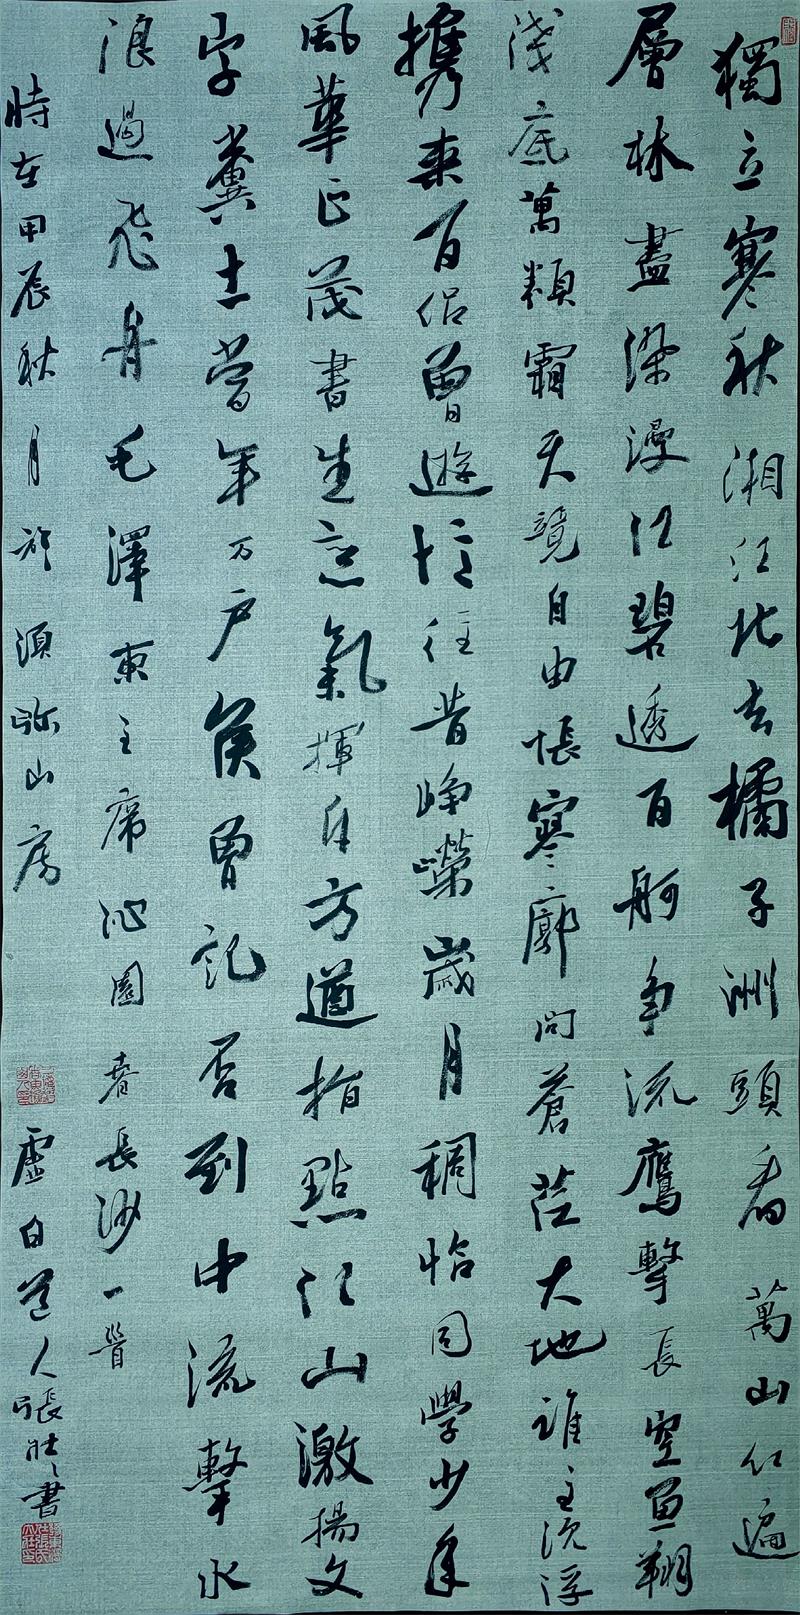 獨立寒秋湘江北去橘子洲頭看萬山紅遍
層林盡染漫江碧透百舸争流鷹擊長空魚翔
淺底萬類霜天競自由悵寥廓問蒼茫大地誰主沉浮
携來百侣曾遊憶往昔崢嶸歲月稠恰同學少年
風華正茂書生意氣揮斥方遒指點江山激揚文
字糞土當年万户侯曾記否到中流擊水
浪遏飛舟毛澤東主席沁園春長沙一首
時在甲辰秋月於須弥山房
虛白道人張壯壯書